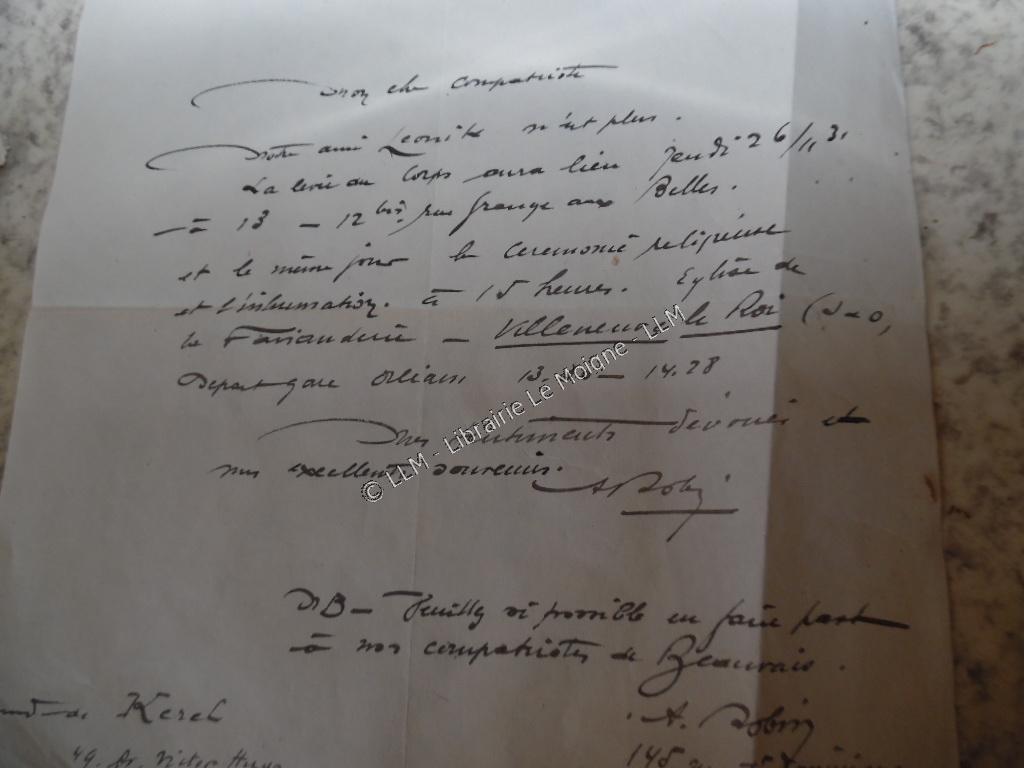 Mon cher compatriote
Notre ami n'est plus.
La levée du Corps aura lieu jeudi 26/
à 13 - 12 bis rue grange aux Belles.
et le même jour la ceremonie religieuse
et l'inhumation. à 15 heures. Eglise de
la Faisanderie - Villeneuve le Roi (S & O,
Depart gare Orléans 13 - 14.28
sentiments dévoués et
mes excellents souvenirs.
A Robin
NB - Veuillez si possible en faire part
à nos compatriotes de Beauvais.
de Kerel A. Robin
49. Av. Victor Hugo 145
© LLM - Librairie Le Moigne - LLM